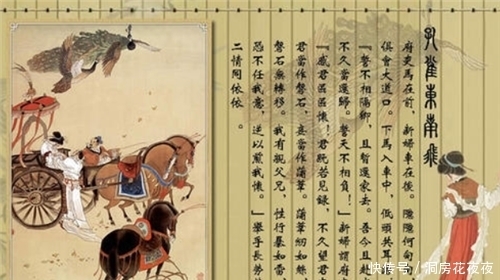 孔雀東南飛
府吏馬在前，新婦車在後。隱隱何
俱會大道口。下馬入車中，低頭共耳
『誓不相隔卿，且暫還家去。吾今且赴
不久當還歸。誓天不相負！』新婦謂府
『感君區區懷！君既若見錄，不久望君
君當作磐石，妾當作蒲葦。蒲葦紉如絲
磐石無轉移。我有親父兄，性行暴如雷
恐不任我意，逆以煎我懷。』舉手長勞
二情同依依。
快传号/洞房花夜夜